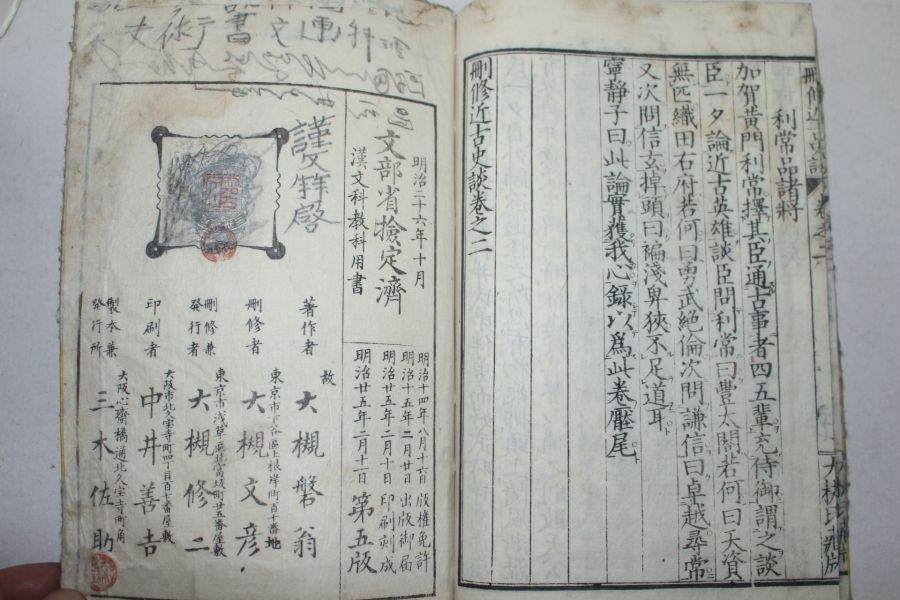 刪修近古史談
利常品諸將
加賀黃門利常擇其臣通古事者四五輩充侍御謂之談
臣一夕論近古英雄談臣問利常曰豐太閤若何曰天資
無匹織田右府若何曰勇武絕倫次問謙信曰卓越尋常
又次問信玄掉頭曰褊淺卑狹不足道耳
寧靜子曰此論實獲我心錄以爲此卷壓尾
刪修近古史談卷之二
明治二十六年十月
文部省檢定濟
漢文科教科用書
明治十四年八月十六日版權免許
明治十五年二月廿日出版御届
明治廿五年二月十日印刷刻成
明治廿五年二月十一日第五版
著作者 故 大槻磐翁
刪修者 東京市下谷區上根岸町百十番地 大槻文彦
刪修兼發行者 東京市淺草區北富坂町廿五番屋敷 大槻修二
印刷者 大阪市北久宝寺町四丁目百十番屋敷 中井善吉
製本兼發行所 大阪心齋橋通北久宝寺町角 三木佐助